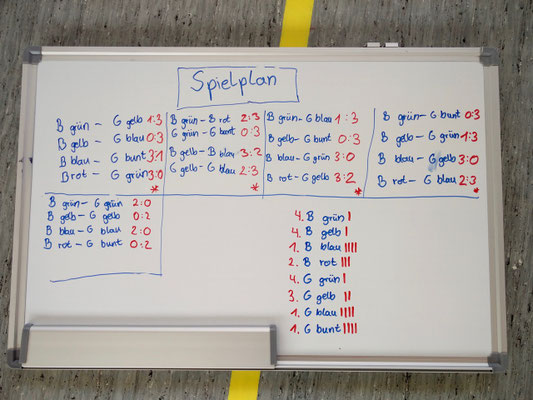 Spielplan
B grün – G gelb 1:3
B gelb – G blau 0:3
B blau – G bunt 3:1
B rot – G grün 3:0
*
B grün – B rot 2:3
G grün – G bunt 0:3
B gelb – B blau 3:2
G gelb – G blau 2:3
*
B grün – G blau 1:3
B gelb – G bunt 0:3
B blau – G grün 3:0
B rot – G gelb 3:2
*
B grün – G bunt 0:3
B gelb – G grün 1:3
B blau – G gelb 3:0
B rot – G blau 2:3
*
B grün – G grün 2:0
B gelb – G gelb 0:2
B blau – G blau 2:0
B rot – G bunt 0:2
4. B grün I
4. B gelb I
1. B blau IIII
2. B rot III
4. G grün I
3. G gelb II
1. G blau IIII
1. G bunt IIII